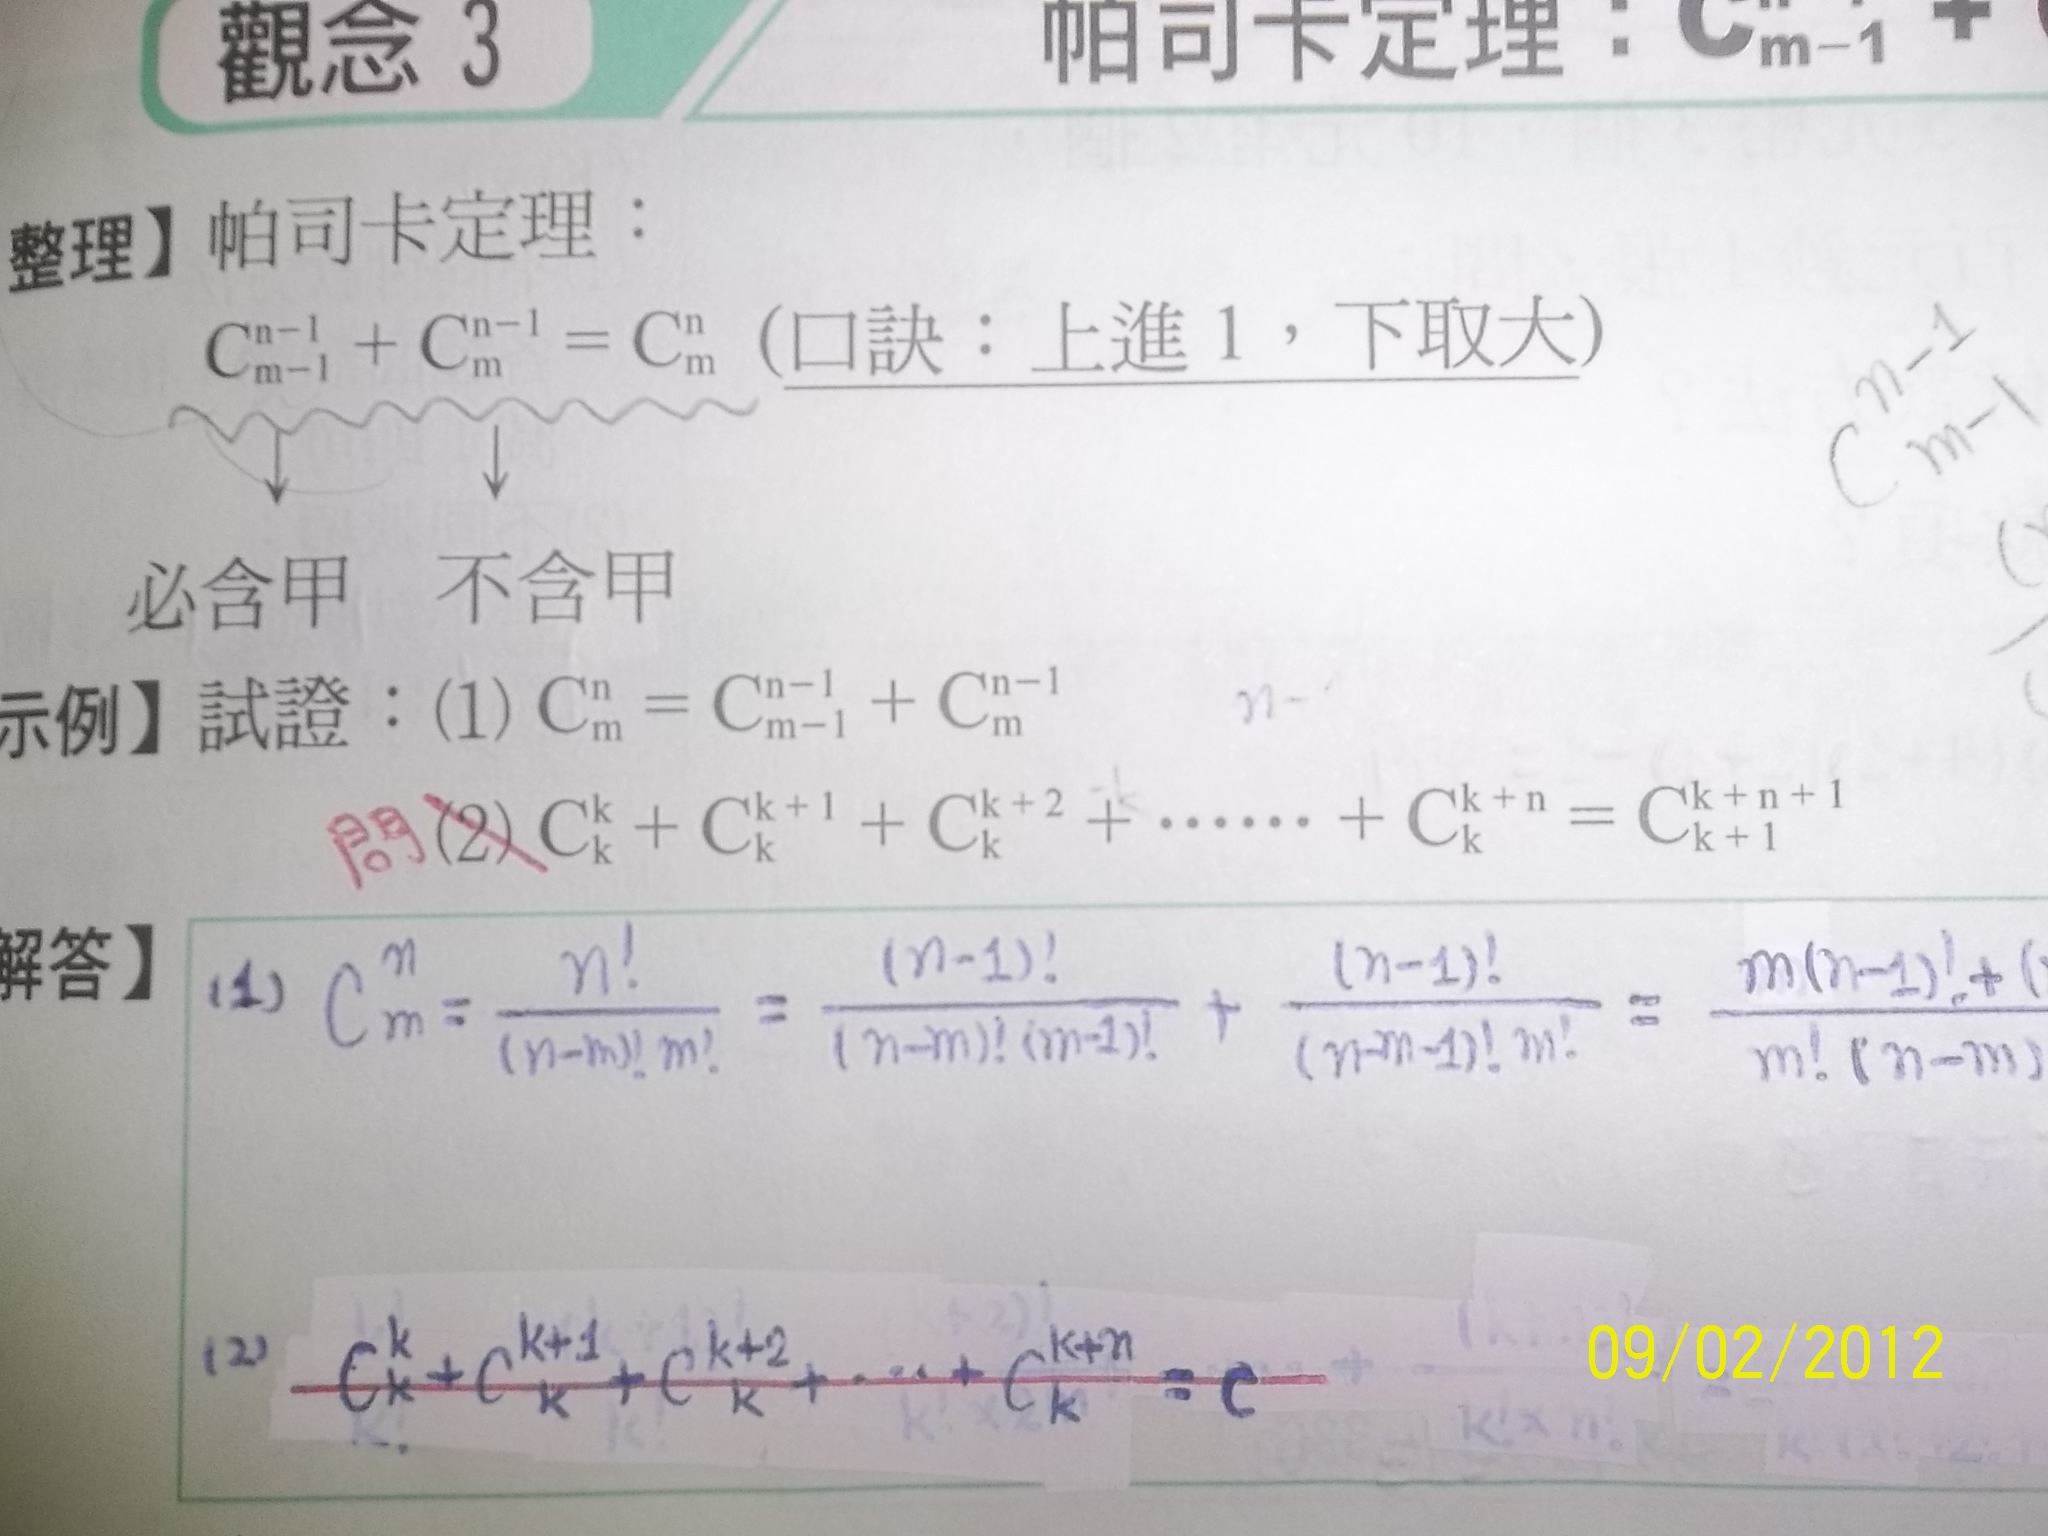 觀念 3 帕司卡定理：C m-1 +
整理】帕司卡定理：
C^{n-1}_{m-1} + C^{n-1}_{m} = C^{n}_{m} (口訣：上進 1，下取大)
C^{n-1}_{m-1}
必含甲 不含甲
示例】試證：(1) C^{n}_{m} = C^{n-1}_{m-1} + C^{n-1}_{m}
n-
問 (2) C^{k}_{k} + C^{k+1}_{k} + C^{k+2}_{k} + …… + C^{k+n}_{k} = C^{k+n+1}_{k+1}
解答】(1) C^{n}_{m} = n!/((n-m)! m!) = (n-1)!/((n-m)! (m-1)!) + (n-1)!/((n-m-1)! m!) = m(n-1)! + ( / m! (n-m)
(2) C^{k}_{k} + C^{k+1}_{k} + C^{k+2}_{k} + ... + C^{k+n}_{k} = C
09/02/2012